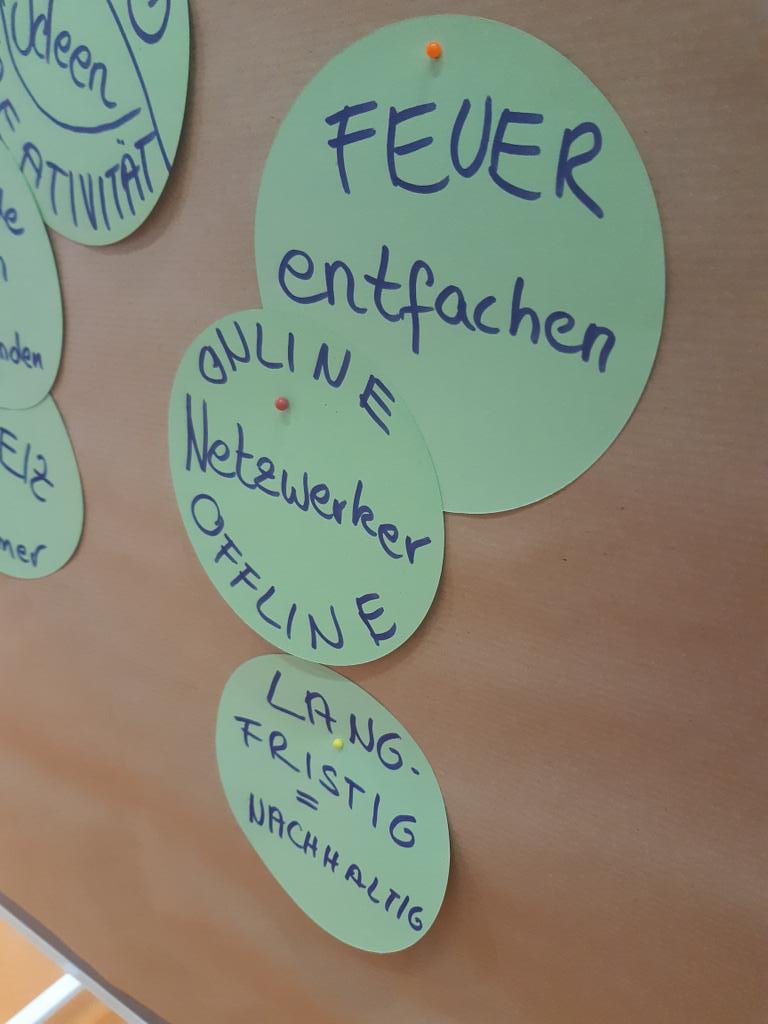 Ideen
ATIVITÄT
nden
EIZ
mer
FEUER
entfachen
ONLINE
Netzwerker
OFFLINE
LANG-
FRISTIG
=
NACHHALTIG